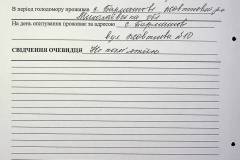 В період голодомору проживав с. Бармашово Жовтневий р-н
Миколаївська обл
На день опитування проживає за адресою с. Бармашово
вул Жовтнева №10
СВІДЧЕННЯ ОЧЕВИДЦЯ Не пам'ятаю